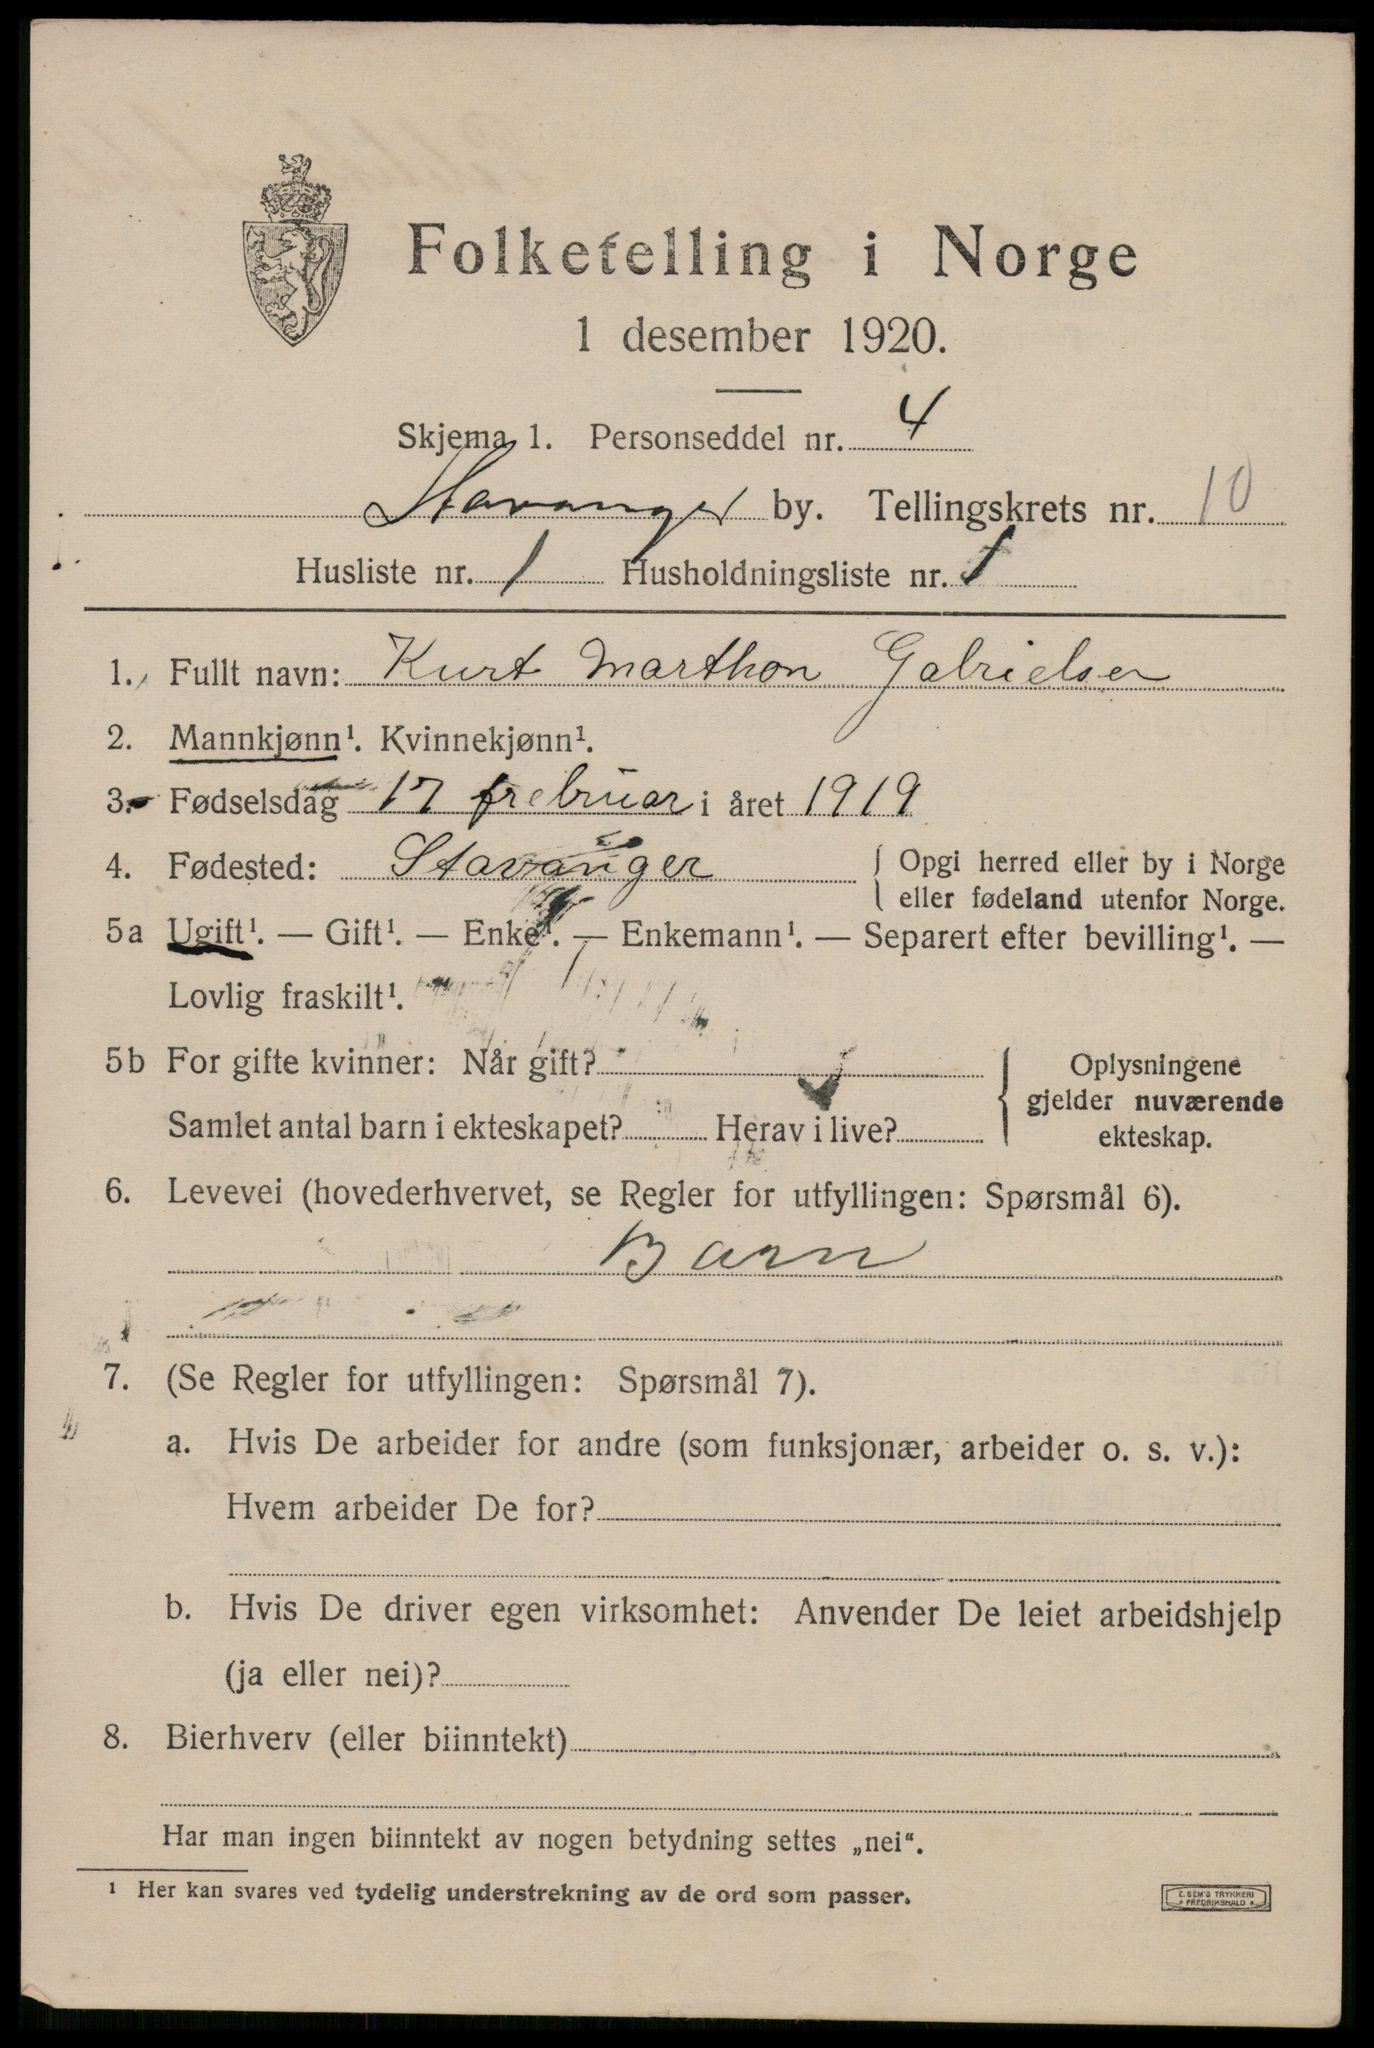 Folketelling i Norge
1 desember 1920.
Skjema 1. Personseddel nr. 4
Stavanger by. Tellingskrets nr. 10
Husliste nr. 1 Husholdningsliste nr. 1
1. Fullt navn: Kurt Marthon Gabrielsen
2. Mannkjønn¹. Kvinnekjønn¹.
3. Fødselsdag 17 februar i året 1919
4. Fødested: Stavanger { Opgi herred eller by i Norge
eller fødeland utenfor Norge.
5a Ugift¹. — Gift¹. — Enke¹. — Enkemann¹. — Separert efter bevilling¹. —
Lovlig fraskilt¹.
5b For gifte kvinner: Når gift? { Oplysningene
gjelder nuværende
Samlet antal barn i ekteskapet? Herav i live? ekteskap.
6. Levevei (hovederhvervet, se Regler for utfyllingen: Spørsmål 6).
Barn
7. (Se Regler for utfyllingen: Spørsmål 7).
a. Hvis De arbeider for andre (som funksjonær, arbeider o. s. v.):
Hvem arbeider De for?
b. Hvis De driver egen virksomhet: Anvender De leiet arbeidshjelp
(ja eller nei)?
8. Bierhverv (eller biinntekt)
Har man ingen biinntekt av nogen betydning settes „nei“.
¹ Her kan svares ved tydelig understrekning av de ord som passer.
E. SEM'S TRYKKERI
FREDRIKSHALD